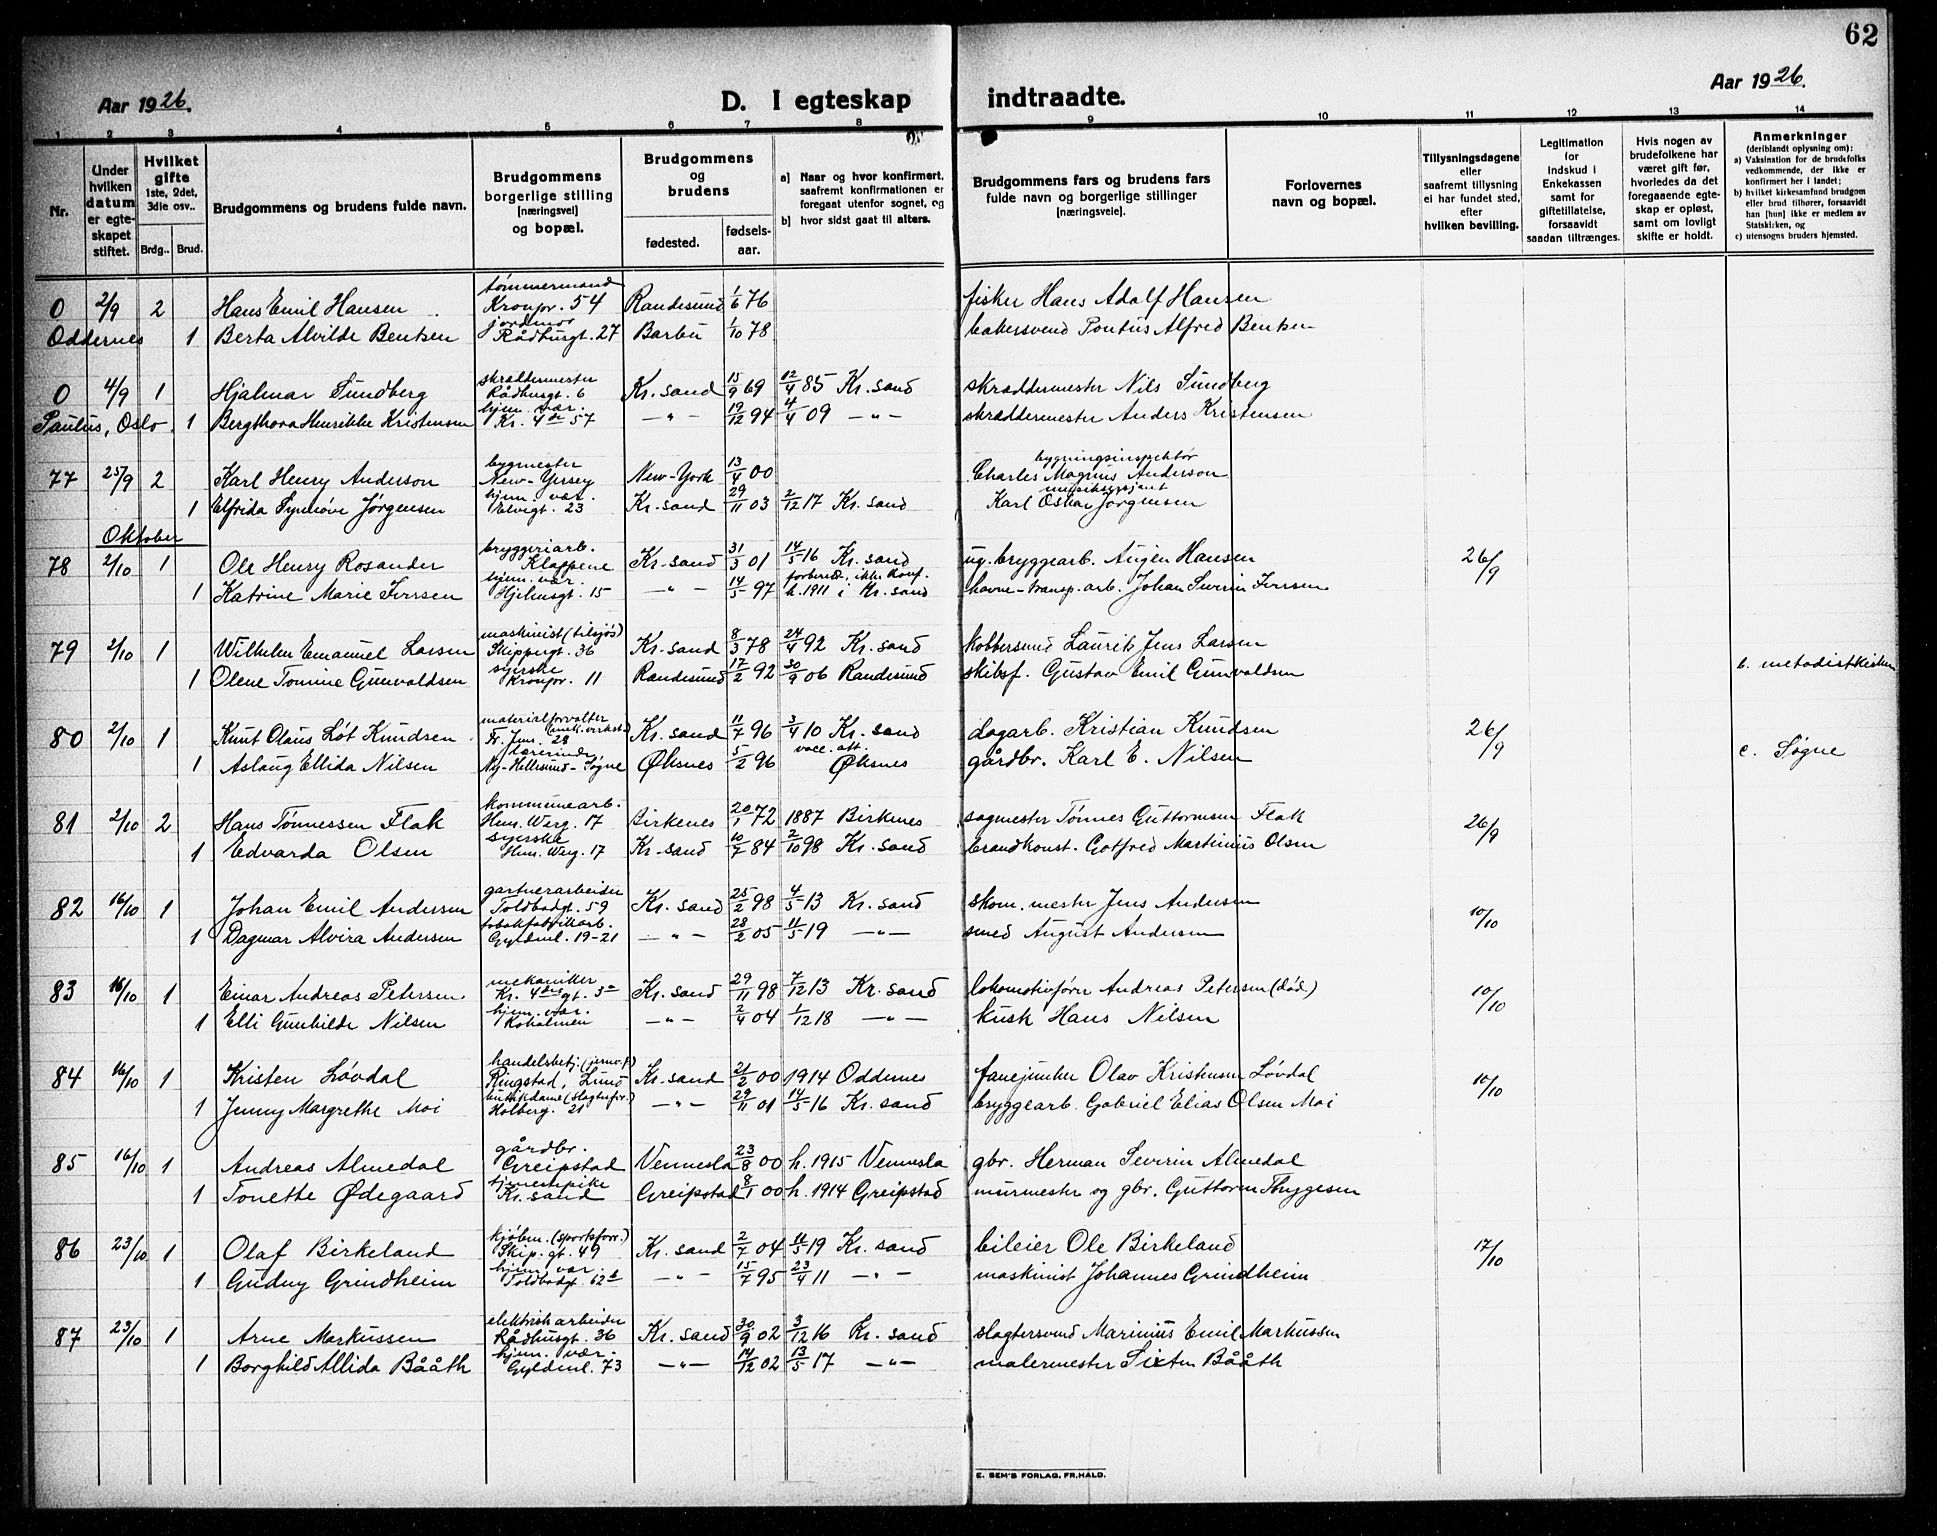 62
Aar 1926.
D. I egteskap indtraadte.
Aar 1926.
1 2 3 4 5 6 7 8 9 10 11 12 13 14
Nr.
Under hvilken datum er egteskapet stiftet.
Hvilket gifte 1ste, 2det, 3die osv..
Brdg.. Brud.
Brudgommens og brudens fulde navn.
Brudgommens borgerlige stilling [næringsvei] og bopæl.
Brudgommens og brudens
fødested. fødselsaar.
a) Naar og hvor konfirmert, saafremt konfirmationen er foregaat utenfor sognet, og
b) hvor sidst gaat til alters.
Brudgommens fars og brudens fars fulde navn og borgerlige stillinger [næringsveie].
Forlovernes navn og bopæl.
Tillysningsdagene eller saafremt tillysning ei har fundet sted, efter hvilken bevilling.
Legitimation for Indskud i Enkekassen samt for giftetillatelse, forsaavidt saadan tiltrænges.
Hvis nogen av brudefolkene har været gift før, hvorledes da det foregaaende egteskap er opløst, samt om lovligt skifte er holdt.
Anmerkninger (deriblandt oplysning om):
a) Vaksination for de brudefolks vedkommende, der ikke er konfirmert her i landet;
b) hvilket kirkesamfund brudgom eller brud tilhører, forsaavidt han [hun] ikke er medlem av Statskirken, og
c) utensogns bruders hjemsted.
0 2/9 2 Hans Emil Hansen tømmermand Kronpr. 54 Randesund 1/6 76 fisker Hans Adolf Hansen
Oddernes 1 Berta Alvilde Bentsen jordmor Rådhusgt. 27 Barbu 1/10 78 bakersvend Pontus Alfred Bentsen
0 4/9 1 Hjalmar Sundberg skræddermester Rådhusgt. 6 Kr. sand 15/9 69 12/4 85 Kr. sand skræddermester Nils Sundberg
Paulus, Oslo. 1 Bergthora Henrikke Kristensen hjem. vær. Kr. 4de 57 —"— 19/12 94 4/4 09 —"— skræddermester Anders Kristensen
77 25/9 2 Karl Henry Anderson bygmester New-Yersey New-York 13/4 00 bygningsinspektør Charles Magnus Anderson
1 Elfrida Synnøve Jørgensen hjem. vær. Elvegt. 23 Kr. sand 29/11 03 2/12 17 Kr. sand musiksersjant Karl Oskar Jørgensen
Oktober
78 2/10 1 Ole Henry Rosander bryggeriarb. Klappene Kr. sand 31/3 01 14/5 16 Kr. sand ug. bryggearb. Augen Hansen 26/9
1 Katrine Marie Iversen hjem. vær. Hjelmsgt. 15 —"— 14/5 97 forbered. ikke konf. h. 1911 i Kr. sand havne-transp. arb. Johan Severin Iversen
79 2/10 1 Wilhelm Emanuel Larsen maskinist (tilsjøs) Skippergt. 36 Kr. sand 8/3 78 24/4 92 Kr. sand kobbersmed Laurits Jens Larsen
1 Olene Tomine Gunvaldsen syerske Kronpr. 11 Randesund 17/2 92 30/9 06 Randesund skibsf. Gustav Emil Gunvaldsen b. metodistkirken
80 2/10 1 Knut Olaus Løt Knudsen materialforvalter Kr. sand 11/7 96 3/4 10 Kr. sand dagarb. Kristian Knudsen 26/9
1 Aslaug Ellida Nilsen lærerinde Ny-Hellesund-Søgne Øksnes 5/2 96 vacc. att. Øksnes gårdbr. Karl E. Nilsen c. Søgne
81 2/10 2 Hans Tønnessen Flak kommunearb. Hen. Werg. 17 Birkenes 20/1 72 1887 Birkenes sagmester Tønnes Guttormsen Flak 26/9
1 Edvarda Olsen syerske Hen. Werg. 17 Kr. sand 10/7 84 2/10 98 Kr. sand brandkonst. Gotfred Martinius Olsen
82 16/10 1 Johan Emil Andersen gartnerarbeider Toldbodgt. 59 Kr. sand 25/2 98 4/5 13 Kr. sand skom. mester Jens Andersen 10/10
1 Dagmar Alvira Andersen tobakfabrikarb. Gyldenl. 19-21 —"— 28/2 05 11/5 19 —"— smed August Andersen
83 16/10 1 Einar Andreas Petersen mekaniker Kr. 4des gt. 3a Kr. sand 29/11 98 7/12 13 Kr. sand lokomotivfører Andreas Petersen (død.) 10/10
1 Elli Gunhilde Nilsen hjem. vær. Koholmen —"— 2/4 04 1/12 18 —"— kusk Hans Nilsen
84 16/10 1 Kristen Løvdal handelsbetj. (jernv.f) Ringstad, Lund Kr. sand 21/2 00 1914 Oddernes fanejunker Olav Kristensen Løvdal 10/10
1 Jenny Margrethe Moi butikdame (slagterfor.) Holberg. 21 —"— 29/11 01 14/5 16 Kr. sand bryggearb. Gabriel Elias Olsen Moi
85 16/10 1 Andreas Almedal gårdbr. Greipstad Vennesla 23/8 00 h. 1915 Vennesla gbr. Herman Severin Almedal
1 Tonette Ødegaard tjenestepike Kr. sand Greipstad 8/1 00 h. 1914 Greipstad murmester og gbr. Guttorm Thygesen
86 23/10 1 Olaf Birkeland kjøbm. (sportsforr.) Skip. gt. 49 Kr. sand 2/7 04 11/5 19 Kr. sand bileier Ole Birkeland 17/10
1 Gudny Grindheim hjem. vær Toldbodgt. 62b —"— 15/7 95 23/4 11 —"— maskinist Johannes Grindheim
87 23/10 1 Arne Markussen elektrisk arbeider Rådhusgt. 36 Kr. sand 30/9 02 3/12 16 Kr. sand slagtersvend Marinius Emil Markussen
1 Borghild Allida Bååth hjem. vær. Gyldenl. 73 —"— 14/12 02 13/5 17 —"— malermester Sixten Bååth
E. SEM'S FORLAG, FR.HALD.